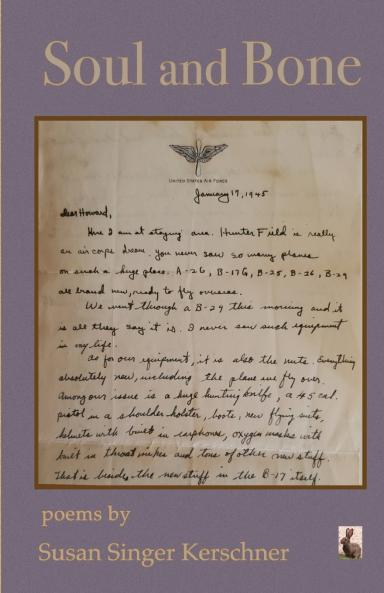 Soul and Bone
UNITED STATES AIR FORCE
January 17, 1945
dear Howard,
Here I am at staging area. Hunter Field is really
an air corps dream. You never saw so many planes
on such a huge place. A-26, B-17G, B-25, B-26, B-29
all brand new, ready to fly overseas.
We went through a B-29 this morning and it
is all they say it is. I never saw such equipment
in my life.
as for our equipment, it is also the nuts. Everything
absolutely new, including the plane we fly over.
Among our issue is a huge hunting knife, a .45 cal.
pistol in a shoulder holster, boots, new flying suits,
helmets with built in earphones, oxygen masks with
built in throat mikes and tons of other new stuff.
That is besides the new stuff in the B-17 itself.
poems by
Susan Singer Kerschner